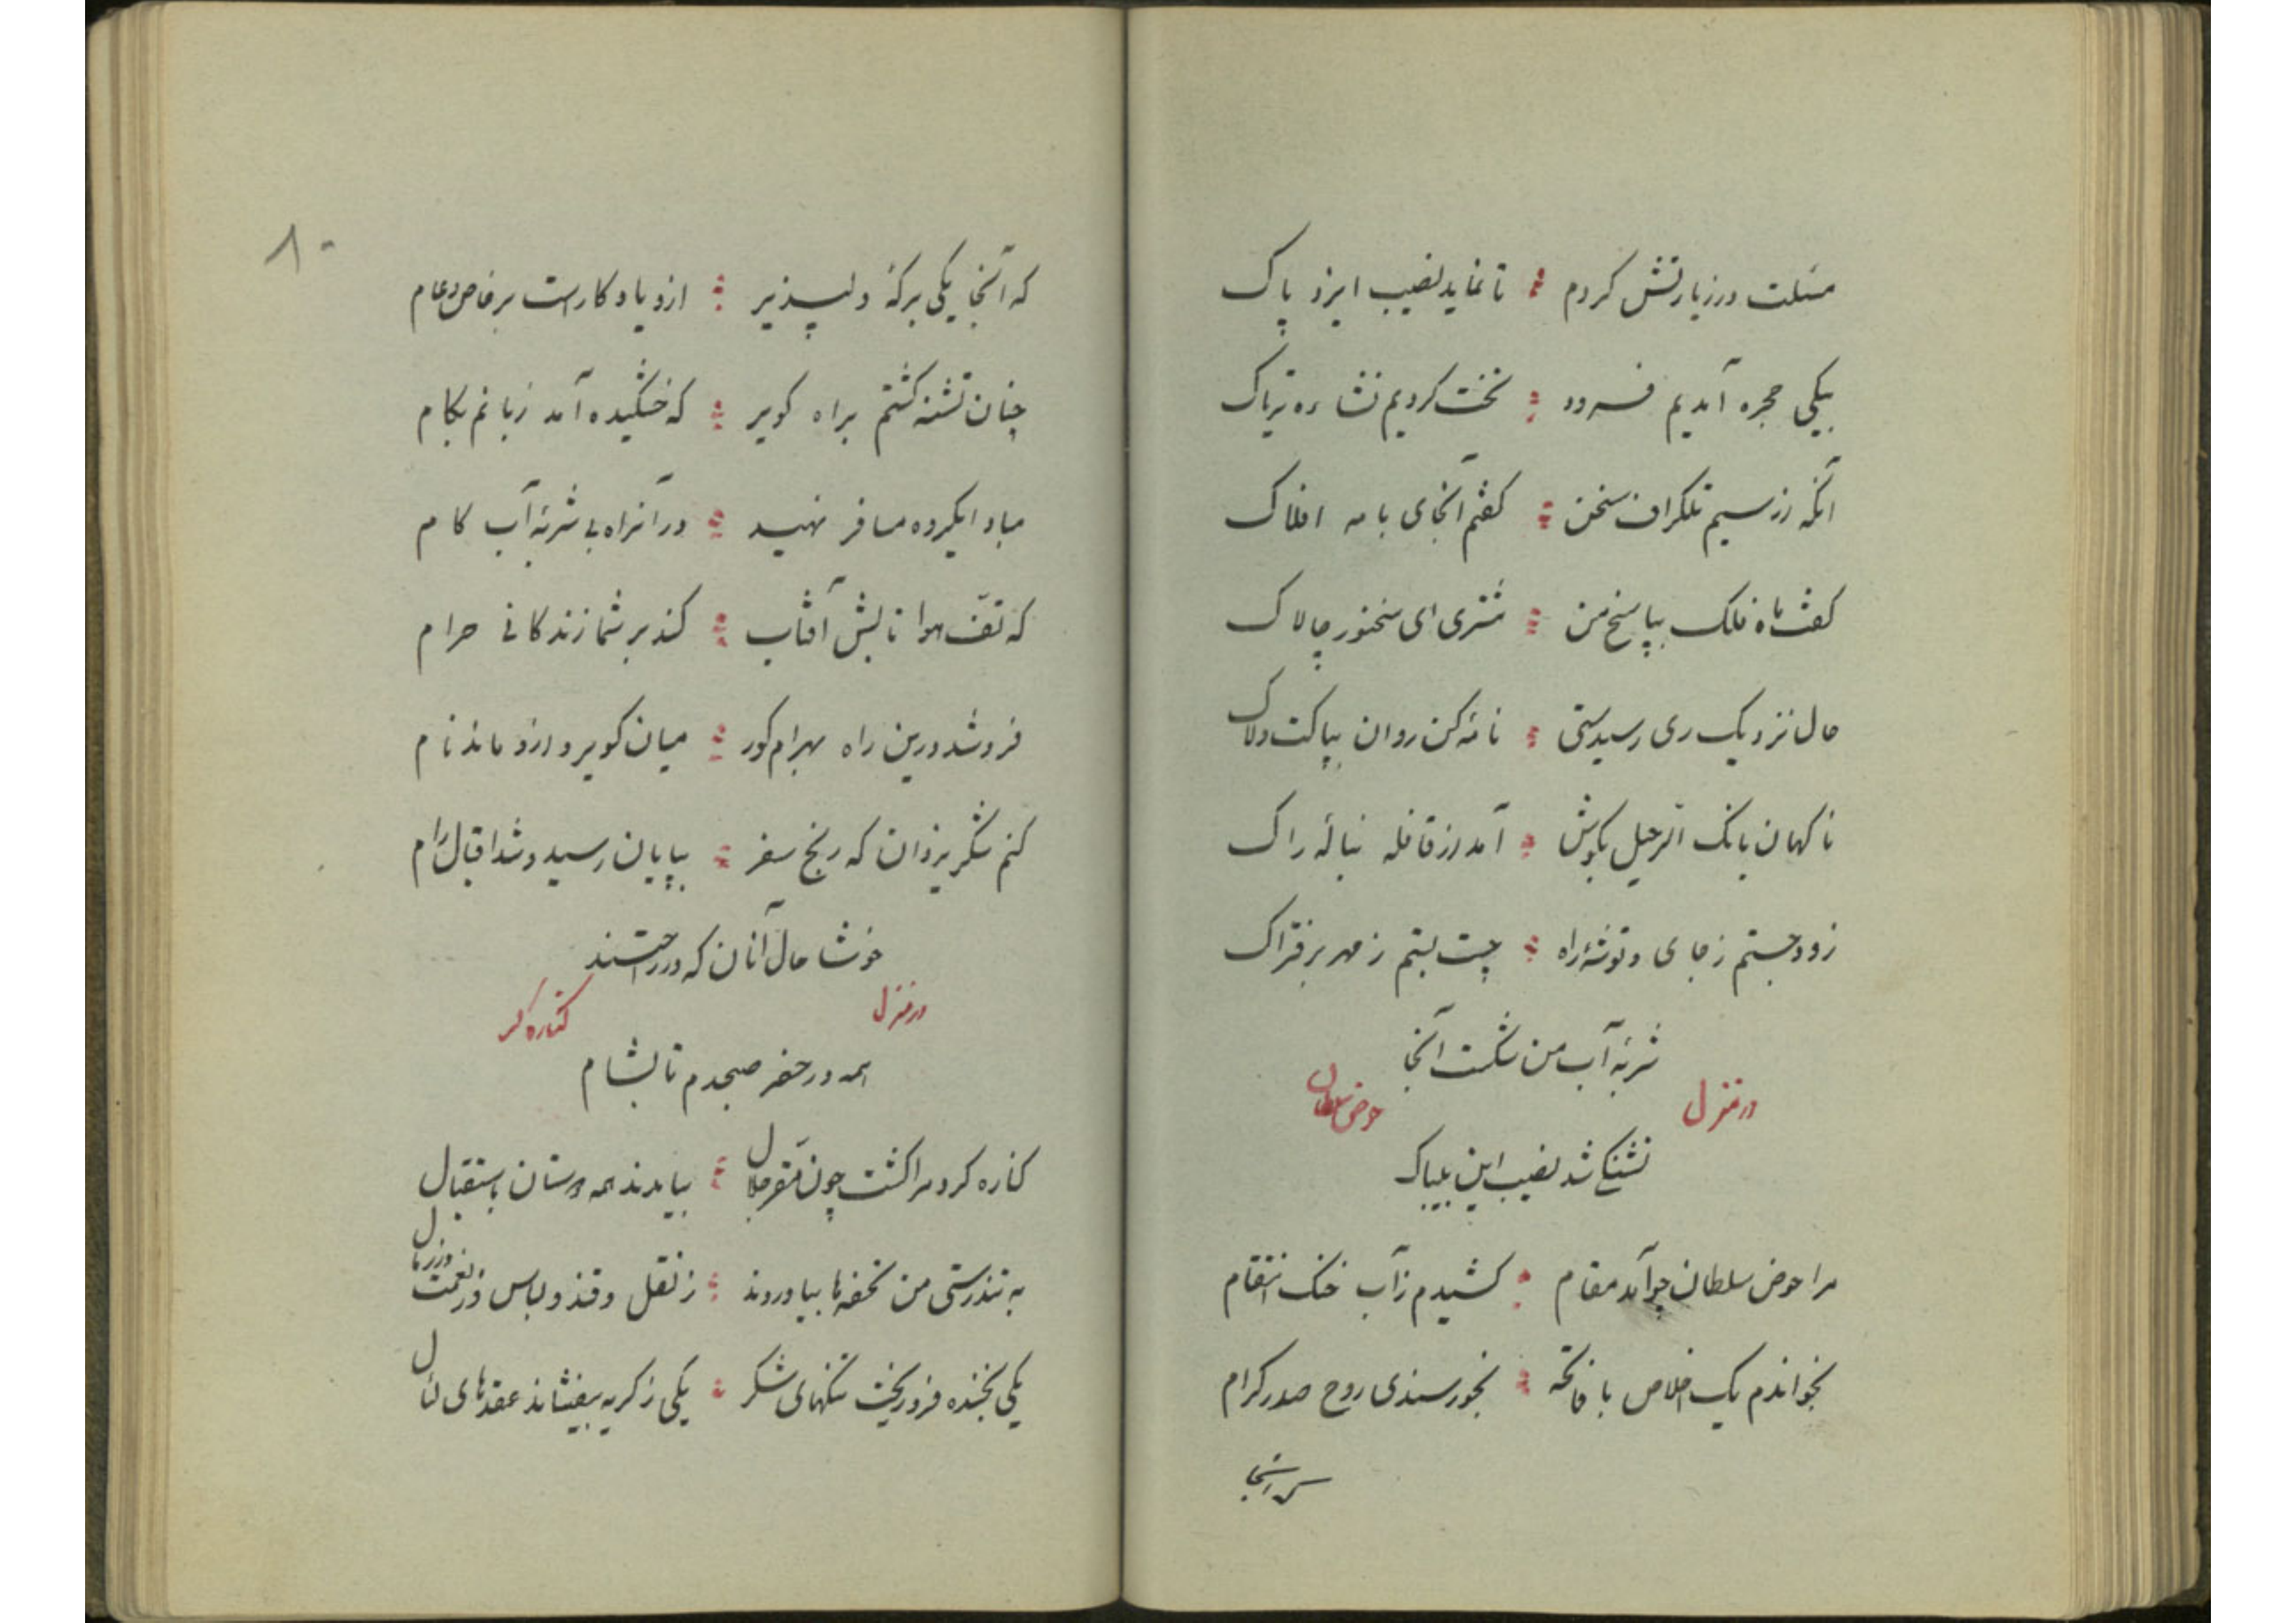 مسئلت در زیارتش کردم ∴ تا نماید نصیب ایزد پاک
بیکی حجره آمدیم فرود ∴ تخت کردیم نشاءه تریاک
آنگه از سیم تلگراف سخن ∴ گفتم آنجای با مه افلاک
گفت ماه فلک بپاسخ من ∴ مشتری ای سخنور چالاک
حال نزدیک ری رسیدستی ∴ نامهٔ کن روان بپاکت و لاک
ناگهان بانگ الرحیل بگوش ∴ آمد از قافله بنالهٔ راک
زود جستم ز جای و توشهٔ راه ∴ چست بستم ز مهر بر فتراک
شربهٔ آب من شکست آنجا
در منزل حوض سلطان
تشنگی شد نصیب این بیباک
مرا حوض سلطان چو آمد مقام ∴ کشیدم ز آب خنک انتقام
بخواندم یک اخلاص با فاتحه ∴ بخورسندی روح صدر کرام
که آنجا
۸۰
که آنجا یکی برکهٔ دلپذیر ∴ ازو یادگارست بر خاص و عام
چنان تشنه گشتم براه کویر ∴ که خشکیده آمد زبانم بکام
مباد ایگروه مسافر نهید ∴ در آنراه بی شربهٔ آب گام
که تفّ هوا تابش آفتاب ∴ کند بر شما زندگانی حرام
فرو شد درین راه بهرام گور ∴ میان کویر و ازو ماند نام
کنم شکر یزدان که رنج سفر ∴ بپایان رسید و شد اقبال رام
خوشا حال آنان که در راحتند
در منزل کناره گرد
همه در حضر صبحدم تا بشام
کناره گرد مرا گشت چون مقر جلال ∴ بیامدند همه دوستان باستقبال
به تندرستی من تحفه‌ها بیاوردند ∴ ز نقل و قند و لباس و ز نعمت و زر و مال
یکی بخنده فرو ریخت تنگهای شکر ∴ یکی ز گریه بیفشاند عقدهای لئال